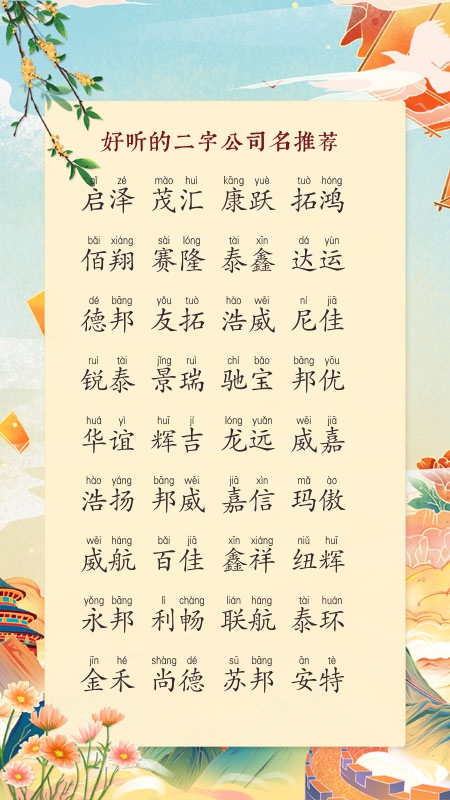 好听的二字公司名推荐
qǐ zé mào huì kāng yuè tuò hóng
启泽 茂汇 康跃 拓鸿
bǎi xiáng sài lóng tài xīn dá yùn
佰翔 赛隆 泰鑫 达运
dé bāng yǒu tuò hào wēi ní jiā
德邦 友拓 浩威 尼佳
ruì tài jǐng ruì chí bǎo bāng yōu
锐泰 景瑞 驰宝 邦优
huá yì huī jí lóng yuǎn wēi jiā
华谊 辉吉 龙远 威嘉
hào yáng bāng wēi jiā xìn mǎ ào
浩扬 邦威 嘉信 玛傲
wēi háng bǎi jiā xīn xiáng niǔ huī
威航 百佳 鑫祥 纽辉
yǒng bāng lì chàng lián háng tài huán
永邦 利畅 联航 泰环
jīn hé shàng dé sū bāng ān tè
金禾 尚德 苏邦 安特